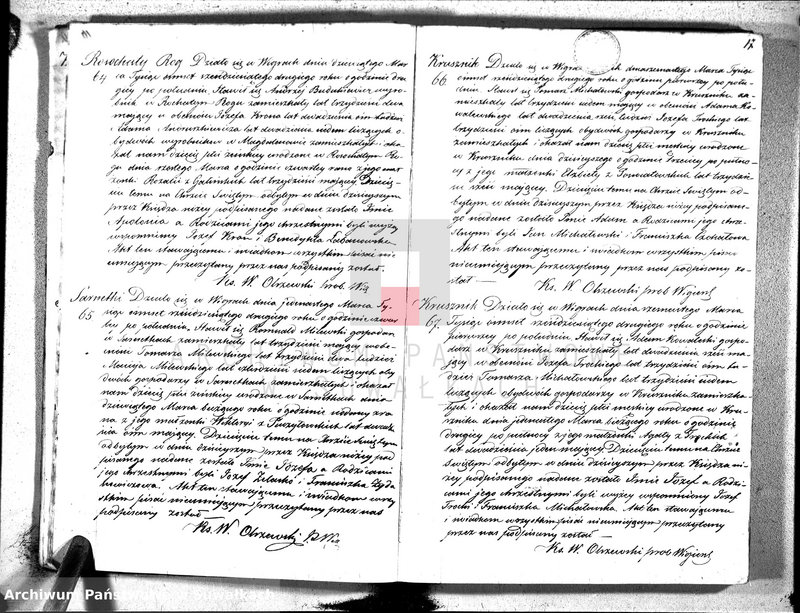 Rowochaty Rog Działo się w Wigrach dnia dziewiątego Mar-
64 ca Tysiąc ośmset sześćdziesiątego drugiego roku o godzinie dru
giej po południu. Stawił się Andrzej wyro-
bnik w Rogu zamieszkały lat trzydzieści dwa
mający w obecności Józefa lat dwadzieścia ośm tudzież
Adama lat dwadzieścia siedm liczących o-
bydwóch wyrobników w zamieszkałych i oka-
zał nam dziecię płci żeńskiej urodzone w Ro-
gu dnia szóstego Marca o godzinie czwartej rano z jego mał-
żonki Rozalii z lat trzydzieści mającej. Dziecię-
ciu temu na Chrzcie Świętym odbytym w dniu dzisiejszym
przez Księdza niżej podpisanego nadane zostało Imie
Apolonia a Rodzicami jego chrzestnymi byli wyżej
wspomniony Józef i Benedykta
Akt ten stawającemu i świadkom wszystkim pisać nie
umiejącym przeczytany przez nas podpisany został.
Ks. W. Obrzewski prob. Wig
Sarnetki Działo się w Wigrach dnia jedenastego Marca Ty-
65 siąc ośmset sześćdziesiątego drugiego roku o godzinie czwar-
tej po południu. Stawił się Romuald Milewski gospodarz
w Sarnetkach zamieszkały lat trzydzieści mający w obe-
cności Tomasza Milewskiego lat trzydzieści dwa tudzież
Macieja Milewskiego lat siedm liczących oby
dwóch gospodarzy w Sarnetkach zamieszkałych i okazał
nam dziecię płci żeńskiej urodzone w Sarnetkach dnia
dziewiątego Marca bieżącego roku o godzinie siódmej zra-
na z jego małżonki Wiktoryi z lat dwadzie-
ścia ośm mającej. Dziecięciu temu na Chrzcie Świętym
odbytym w dniu dzisiejszym przez Księdza niżej pod-
pisanego nadane zostało Imie Józefa a Rodzicami
jego chrzestnymi byli Józef i Franciszka
Akt ten stawającemu i świadkom wszy-
stkim pisać nieumiejącym przeczytany przez nas
podpisany został —
Ks. W. Obrzewski
17
Krusznik Działo się w Wigrach dnia Marca Tysiąc
66 ośmset sześćdziesiątego drugiego roku o godzinie pierwszej po połu-
dniu. Stawił się Tomasz Michalewski gospodarz w Kruszniku za-
mieszkały lat trzydzieści siedm mający w obecności Adama Ko-
walewskiego lat dwadzieścia sześć tudzież Józefa Trochiego lat
trzydzieści ośm liczących obydwóch gospodarzy w Kruszniku
zamieszkałych i okazał nam dziecię płci męskiej urodzone
w Kruszniku dnia dzisiejszego o godzinie trzeciej po półno-
cy z jego małżonki Elżbiety z lat trzydzie-
ści sześć mającej. Dziecięciu temu na Chrzcie Świętym od-
bytym w dniu dzisiejszym przez Księdza niżej podpisa-
nego nadane zostało Imie Adam a Rodzicami jego chrze-
stnymi byli Jan Michalewski i Franciszka
Akt ten stawającemu i świadkom wszystkim pisać
nieumiejącym przeczytany przez nas podpisany zo-
stał —
Ks. W. Obrzewski prob Wigiers
Krusznik Działo się w Wigrach dnia Marca
67. Tysiąc ośmset sześćdziesiątego drugiego roku o godzinie
pierwszej po południu. Stawił się Adam Kowalewski gospo-
darz w Kruszniku zamieszkały lat dwadzieścia sześć ma-
jący w obecności Józefa Trochiego lat trzydzieści ośm tu-
dzież Tomasza Michalewskiego lat trzydzieści siedem
liczących obydwóch gospodarzy w Kruszniku zamieszka-
łych i okazał nam dziecię płci męskiej urodzone w Kru-
szniku dnia jedenastego Marca bieżącego roku o godzinie
drugiej po północy z jego małżonki Agaty z
lat dwadzieścia jeden mającej. Dziecięciu temu na Chrzcie
Świętym odbytym w dniu dzisiejszym przez Księdza ni-
żej podpisanego nadane zostało Imie Józef a Rodzi-
cami jego chrzestnymi byli wyżej wspomniony Józef
Trochi i Franciszka Michalewska Akt ten stawającemu
i świadkom wszystkim pisać nieumiejącym przeczytany
przez nas podpisany został —
Ks. W. Obrzewski prob Wigiers
Archiwum Państwowe w Suwałkach